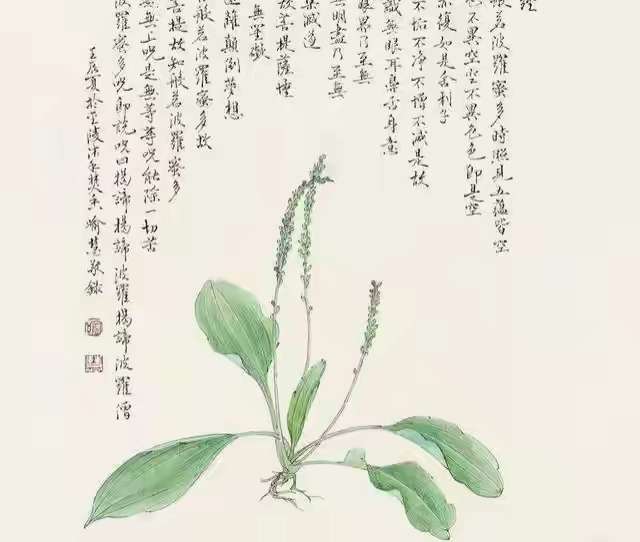 經
般若波羅蜜多時照見五蘊皆空
不異空空不異色色即是空
亦復如是舍利子
不垢不净不增不减是故
識無眼耳鼻舌身意
眼界乃至無
無明盡乃至無
集滅道
故菩提薩埵
無罣礙
遠離顛倒夢想
般若波羅蜜多故
菩提故知般若波羅蜜多
是無上咒是無等等咒能除一切苦
波羅蜜多咒即說咒曰揭諦揭諦波羅揭諦波羅僧
壬辰夏於金陵沐手焚香喻慧敬錄